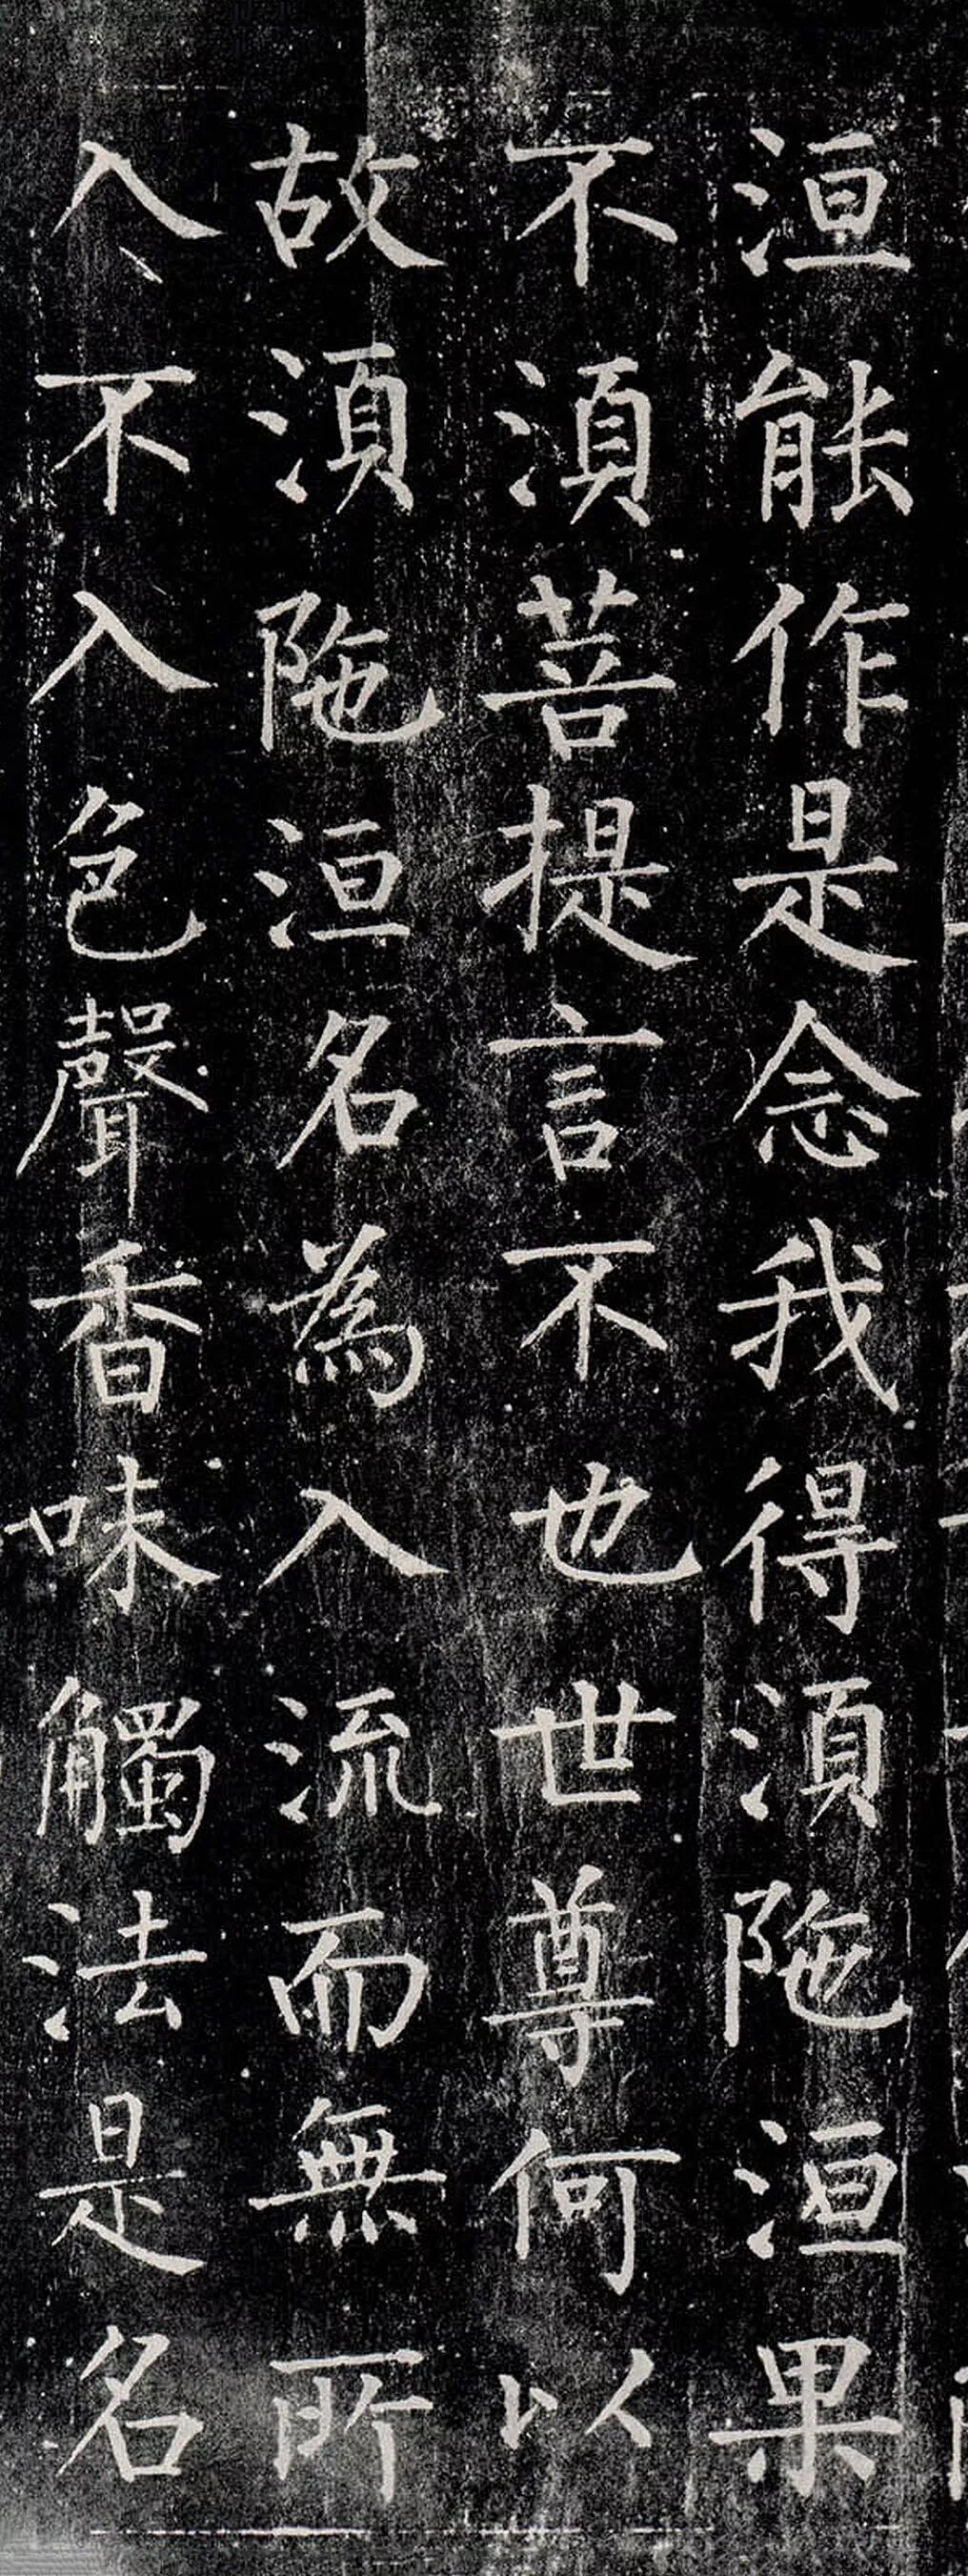 洹能作是念我得湏陁洹果
不湏菩提言不也世尊何以
故湏陁洹名為入流而無所
入不入色聲香味觸法是名